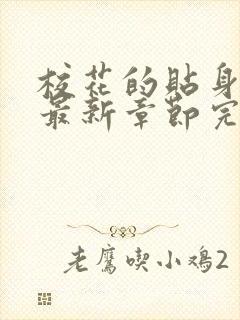 校花的貼身
最新章節完
老鷹喫小鸡2